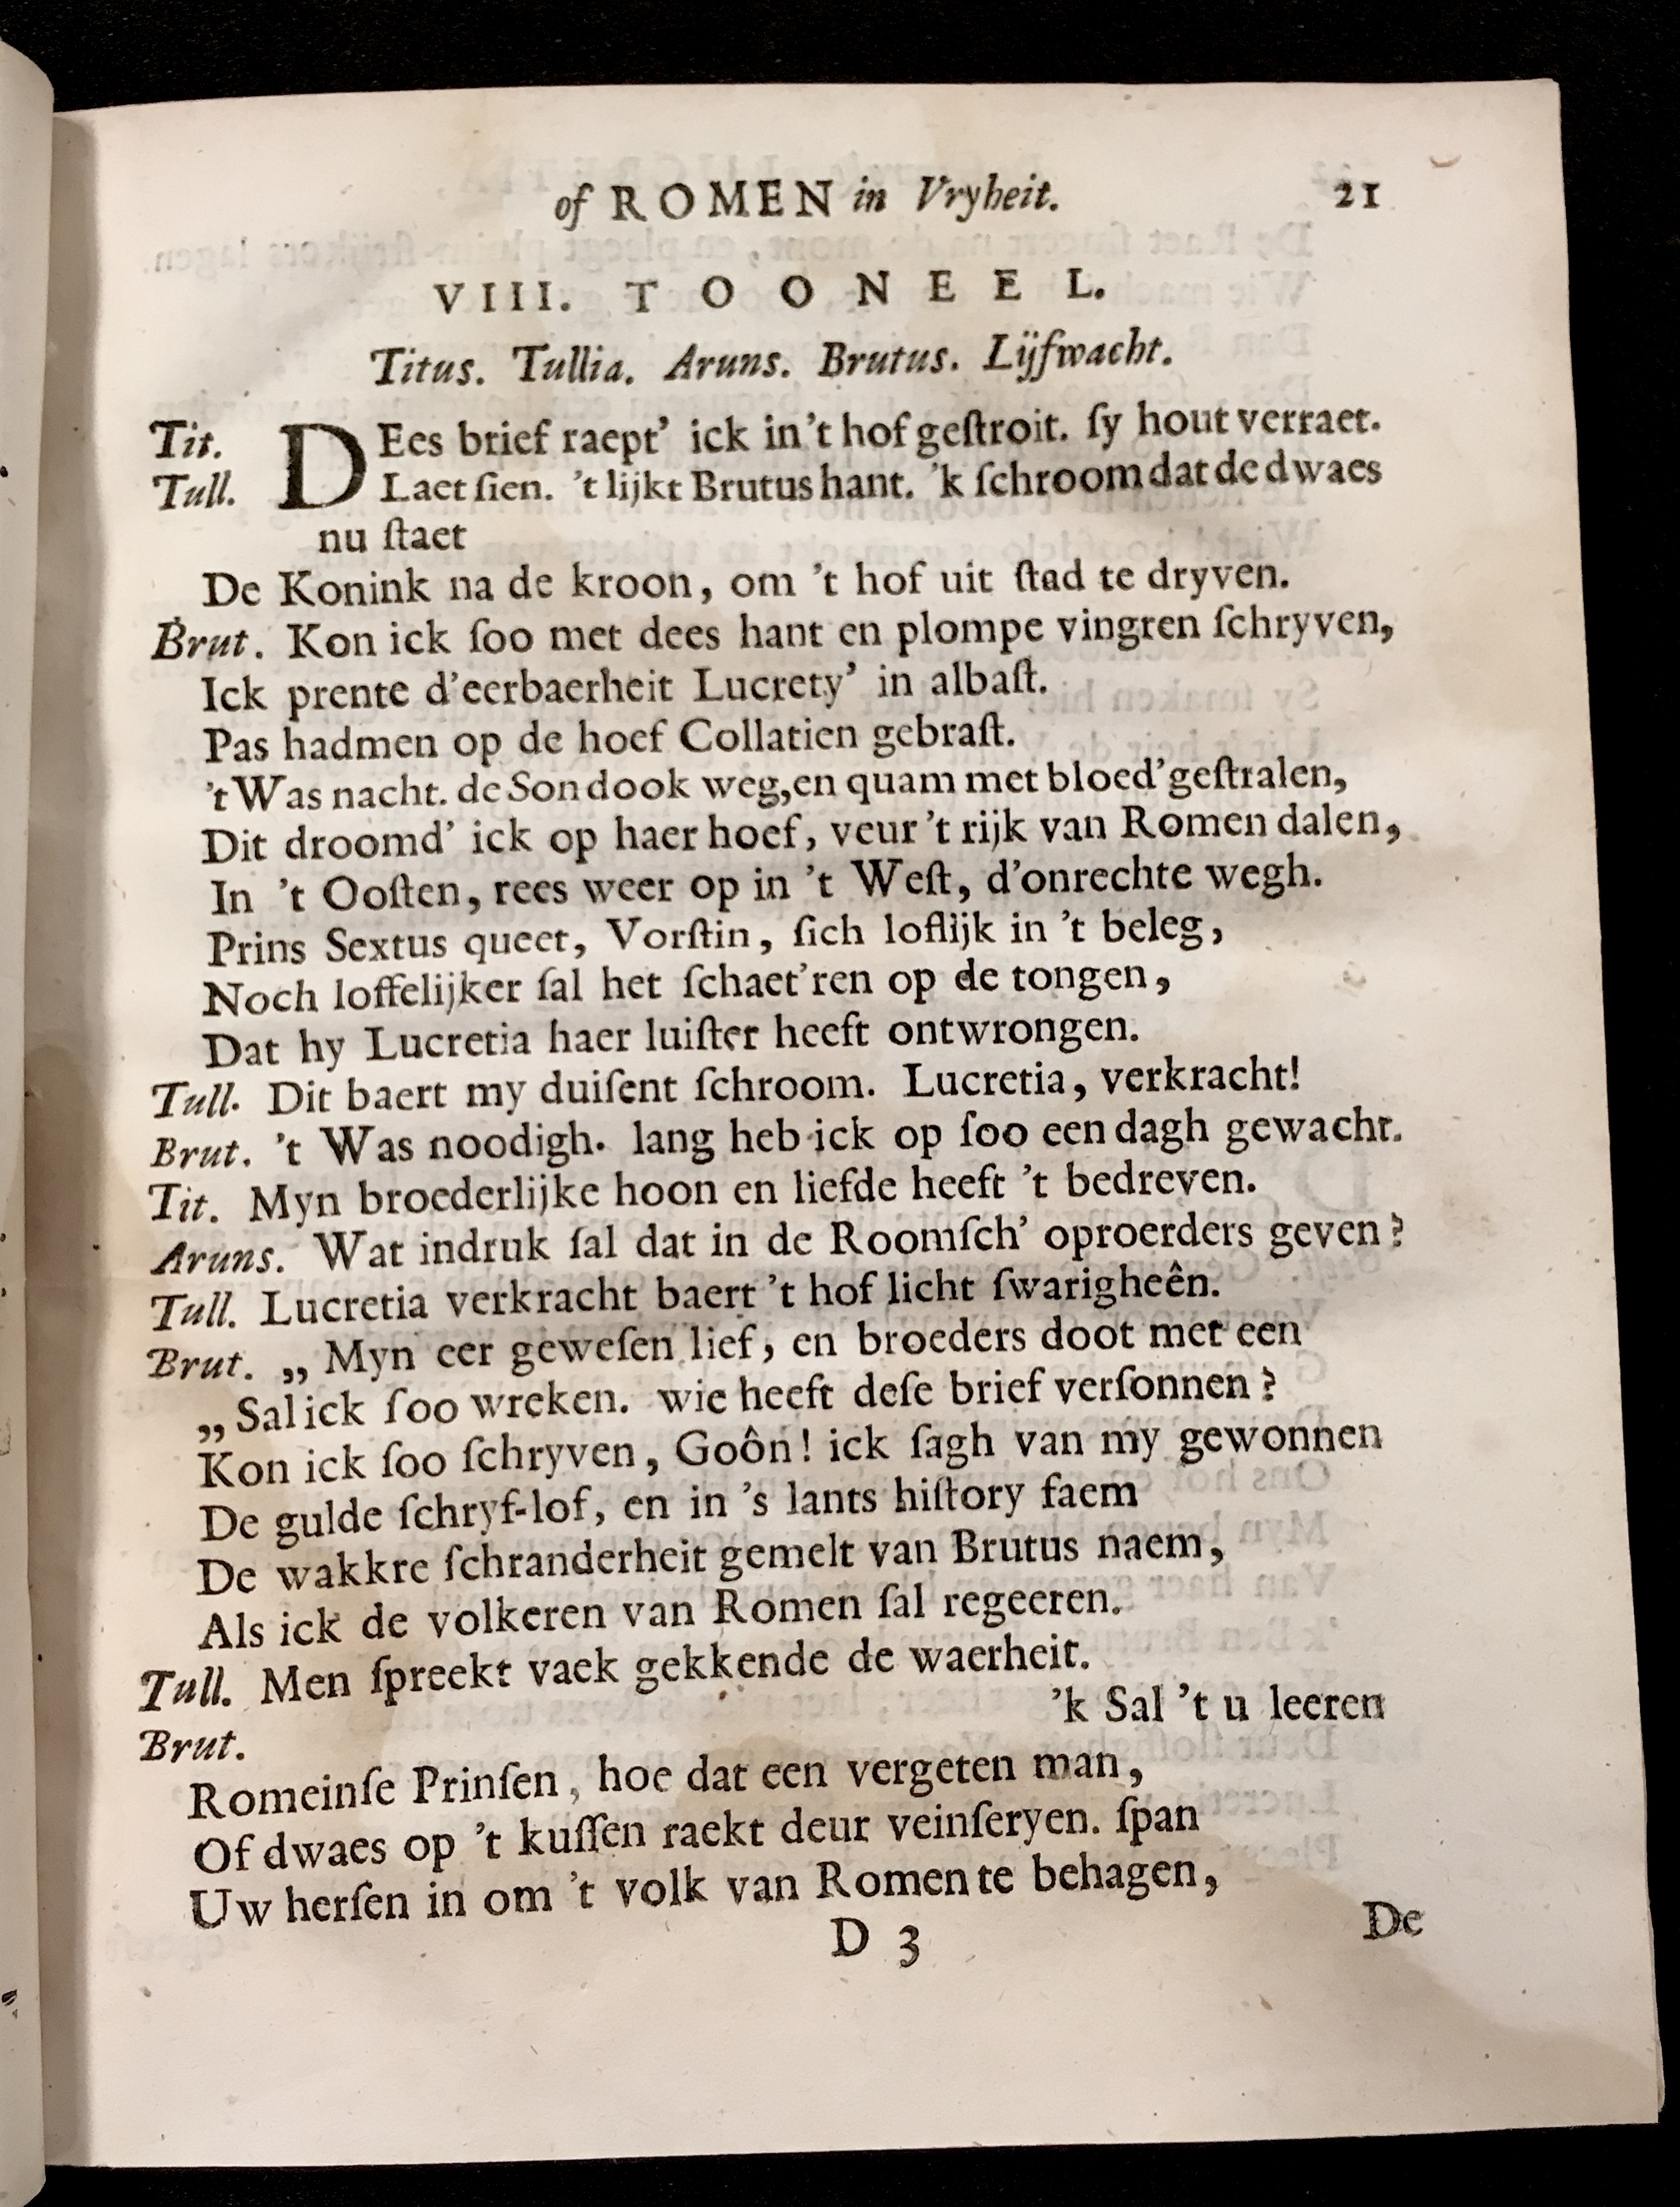 of ROMEN in Vryheit. 21
VIII. TOONEEL.
Titus. Tullia. Aruns. Brutus. Lijfwacht.
Tit. DEes brief raept' ick in 't hof geſtroit. ſy hout verraet.
Tull. Laet ſien. 't lijkt Brutus hant. 'k ſchroom dat de dwaes
nu ſtaet
De Konink na de kroon, om 't hof uit ſtad te dryven.
Brut. Kon ick ſoo met dees hant en plompe vingren ſchryven,
Ick prente d'eerbaerheit Lucrety' in albaſt.
Pas hadmen op de hoef Collatien gebraſt.
't Was nacht. de Son dook weg, en quam met bloed' geſtralen,
Dit droomd' ick op haer hoef, veur 't rijk van Romen dalen,
In 't Ooſten, rees weer op in 't Weſt, d'onrechte wegh.
Prins Sextus queet, Vorſtin, ſich loflijk in 't beleg,
Noch loffelijker ſal het ſchaet'ren op de tongen,
Dat hy Lucretia haer luiſter heeft ontwrongen.
Tull. Dit baert my duiſent ſchroom. Lucretia, verkracht!
Brut. 't Was noodigh. lang heb ick op ſoo een dagh gewacht.
Tit. Myn broederlijke hoon en liefde heeft 't bedreven.
Aruns. Wat indruk ſal dat in de Roomſch' oproerders geven?
Tull. Lucretia verkracht baert 't hof licht ſwarigheên.
Brut. „ Myn eer geweſen lief, en broeders doot met een
„ Sal ick ſoo wreken. wie heeft deſe brief verſonnen?
Kon ick ſoo ſchryven, Goôn! ick ſagh van my gewonnen
De gulde ſchryf-lof, en in 's lants hiſtory faem
De wakkre ſchranderheit gemelt van Brutus naem,
Als ick de volkeren van Romen ſal regeeren.
Tull. Men ſpreekt vaek gekkende de waerheit.
Brut. 'k Sal 't u leeren
Romeinſe Prinſen, hoe dat een vergeten man,
Of dwaes op 't kuſſen raekt deur veinſeryen. ſpan
Uw herſen in om 't volk van Romen te behagen,
D 3 De